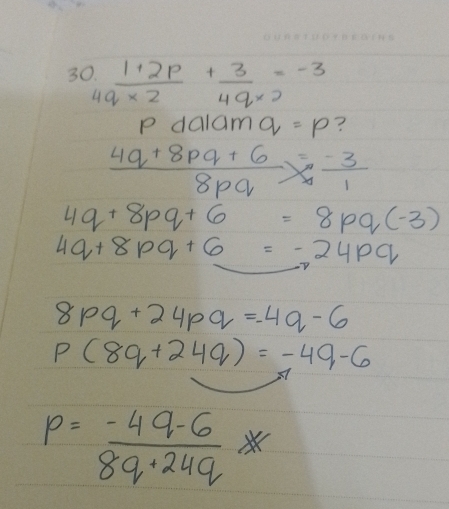 OURSTUDYREGINA
30. 1+2p/4q×2 + 3/4q×2 = -3
p dalam q = p?
4q+8pq+6/8pq = -3/1
4q+8pq+6 = 8pq(-3)
4q+8pq+6 = -24pq
8pq+24pq=-4q-6
p(8q+24q) = -4q-6
p= -4q-6/8q+24q